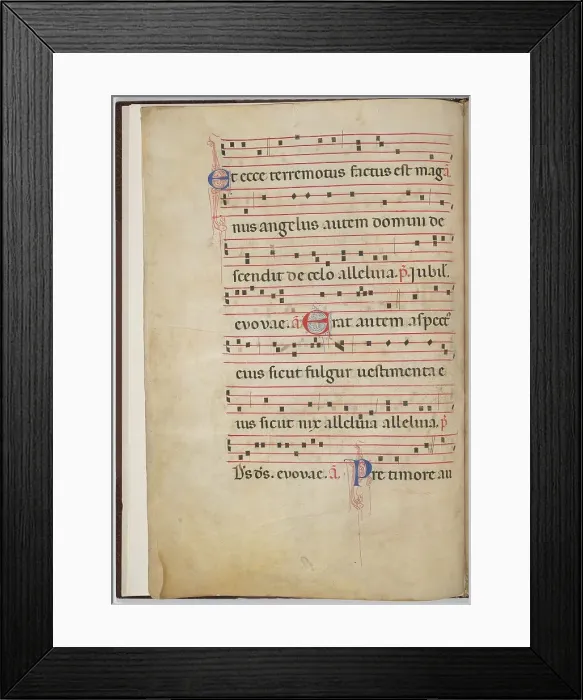 Et ecce terremotus factus est mag ā
nus angelus autem domini de
scendit de celo alleluia. p̄. Jubil.
evovae. ā Erat autem aspect᷒
eius sicut fulgur vestimenta e
ius sicut nix alleluia alleluia. p̄
D̄s d̄s. evovae. ā. Pre timore au